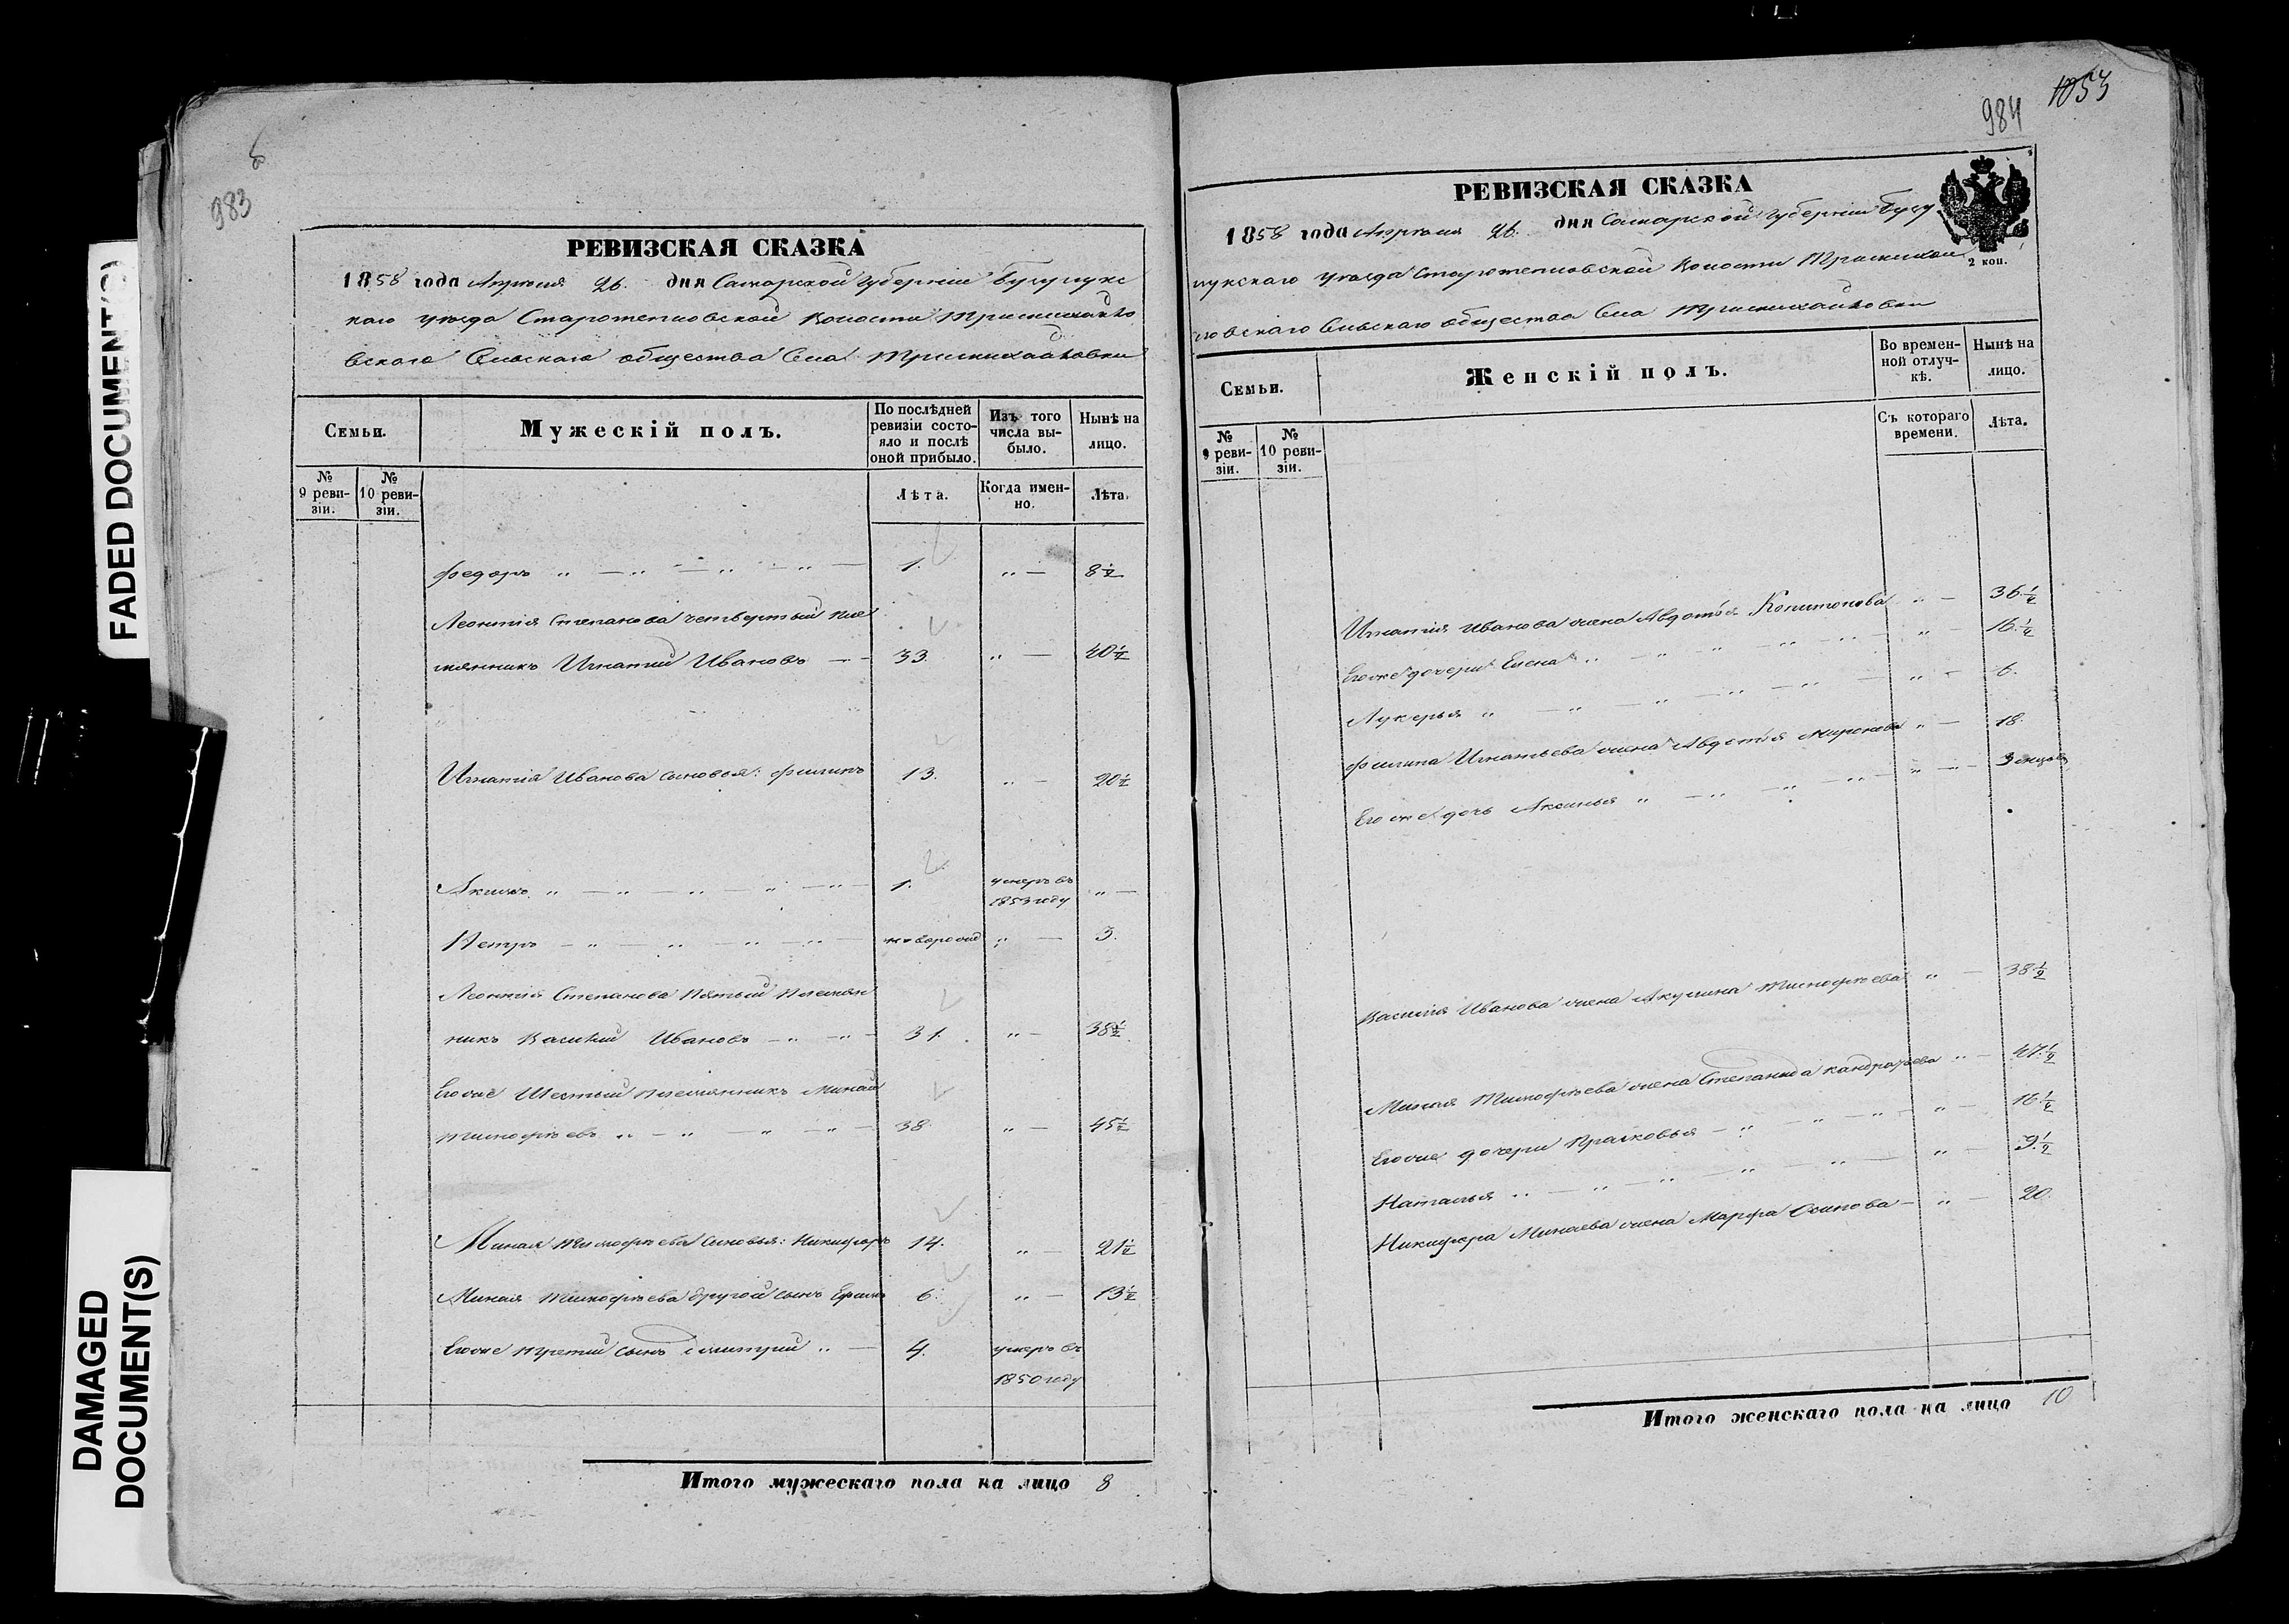 983
РЕВИЗСКАЯ СКАЗКА
1858 года Апреля 26. дня Самарской Губернiи Бузулукс
каго уѣзда Старотепловской волости
вскаго Сельскаго общества Села
Семьи.
Мужескiй полъ.
По послѣдней ревизiи состояло и послѣ оной прибыло.
Изъ того числа выбыло.
Нынѣ на лицо.
№ 9 ревизiи.
№ 10 ревизiи.
Лѣта.
Когда именно.
Лѣта.
Федоръ „ — „ — „ — „ — 1. „ — 8½
Леонтiя Степанова четвертый пле
мянникъ Игнатiй Ивановъ — 33. „ — 40½
Игнатiя Иванова сыновья: Филипъ 13. „ — 20½
Акимъ „ — „ — „ — „ — „ 1. умеръ въ 1853 году „ —
Петръ — „ — „ — „ — „ — новорожд „ — 3.
Леонтiя Степанова пятый племян
никъ Василiй Ивановъ — „ — „ — 31. „ — 38½
Егоже Шестый племянникъ Минай
Тимофѣевъ „ — „ — „ — „ — 38. „ — 45½
Миная Тимофѣева сыновья: Никифоръ 14. „ — 21½
Миная Тимофѣева другой сынъ Ефимъ 6. „ — 13½
Егоже третiй сынъ Дмитрiй „ — 4. умеръ въ
1850 году
Итого мужескаго пола на лицо 8
984
1053
РЕВИЗСКАЯ СКАЗКА
1858 года Апреля 26. дня Самарской Губернiи Бузу
лукскаго уѣзда Старотепловской волости
Сельскаго общества Села
2 коп.
Семьи.
Женскiй полъ.
Во временной отлучкѣ.
Нынѣ на лицо.
№ 9 ревизiи.
№ 10 ревизiи.
Съ котораго времени.
Лѣта.
Игнатiя Иванова жена Авдотья Копитонова „ — 36½
Егоже дочери Елена „ — „ — „ — „ — „ — 16½
Лукерья „ — „ — „ — „ — „ — „ — 6.
Филипа Игнатьева жена Авдотья Миронова „ — 18.
Егоже дочь Аксинья „ — „ — „ — „ — „ — 3 месяцовъ
Василiя Иванова жена Акулина Тимофѣева „ — 38½
Миная Тимофѣева жена Степанида Кандратьева „ — 47½
Егоже дочери Прасковья — „ — „ — „ — „ — 16½
Наталья „ — „ — „ — „ — „ — „ — 9½
Никифора Минаева жена Марфа Осипова — „ — 20.
Итого женскаго пола на лицо 10
FADED DOCUMENT(S)
DAMAGED
DOCUMENT(S)